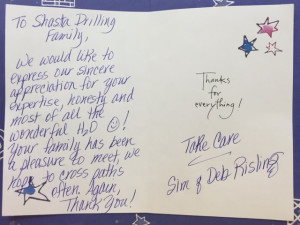 To Shasta Drilling
Family,
We would like to
express our sincere
appreciation for your
expertise, honesty and
most of all the
wonderful H2O ☺!
Your family has been
a pleasure to meet, we
hope to cross paths
often. Again,
Thank You!
Thanks
for
everything!
Take Care
Sim & Deb Risling